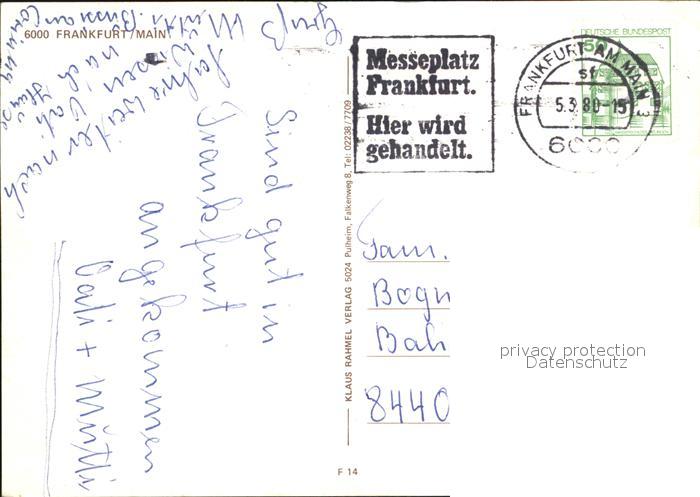 6000 FRANKFURT/MAIN
Sind gut in
Frankfurt
angekommen
Vati + Mutti
Fahre weiter nach
Gruß Mutti
KLAUS RAHMEL VERLAG 5024 Pulheim, Falkenweg 8, Tel: 02238/7709
F 14
Messeplatz
Frankfurt.
Hier wird
gehandelt.
DEUTSCHE BUNDESPOST
50
FRANKFURT AM MAIN 3
sf
5.3.80-15
6000
Fam.
Bogn
Bah
8440
privacy protection
Datenschutz